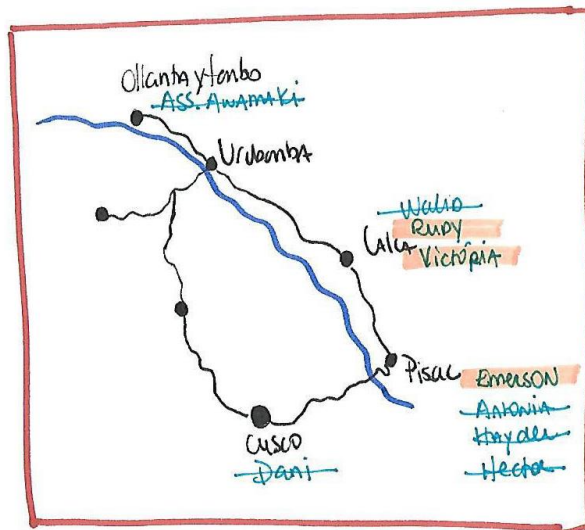 Ollantaytambo
ASS. AWAMAKI
Urubamba
Walio
RUDY
Calca
VICTÓRIA
Pisac
EMERSON
ANTONIA
Haydee
Hector
CUSCO
Dani